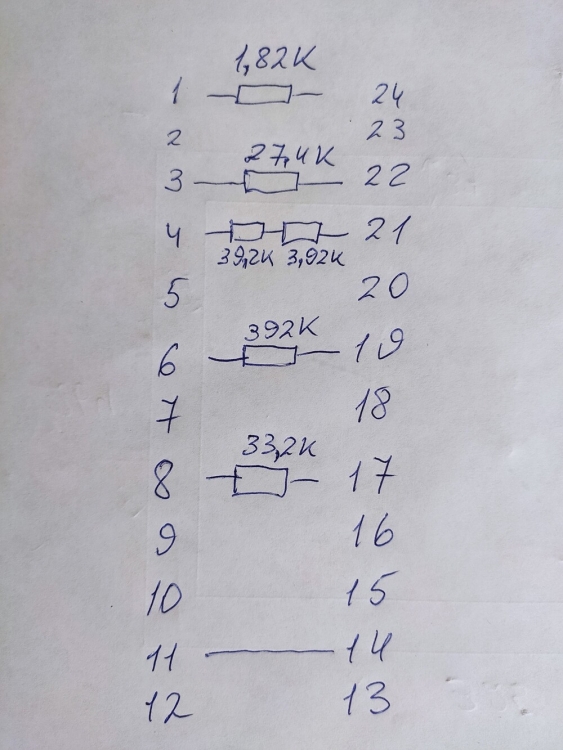 1,82K
1 24
2 23
27,4K
3 22
4 21
39,2K 3,92K
5 20
392K
6 19
7 18
33,2K
8 17
9 16
10 15
11 14
12 13